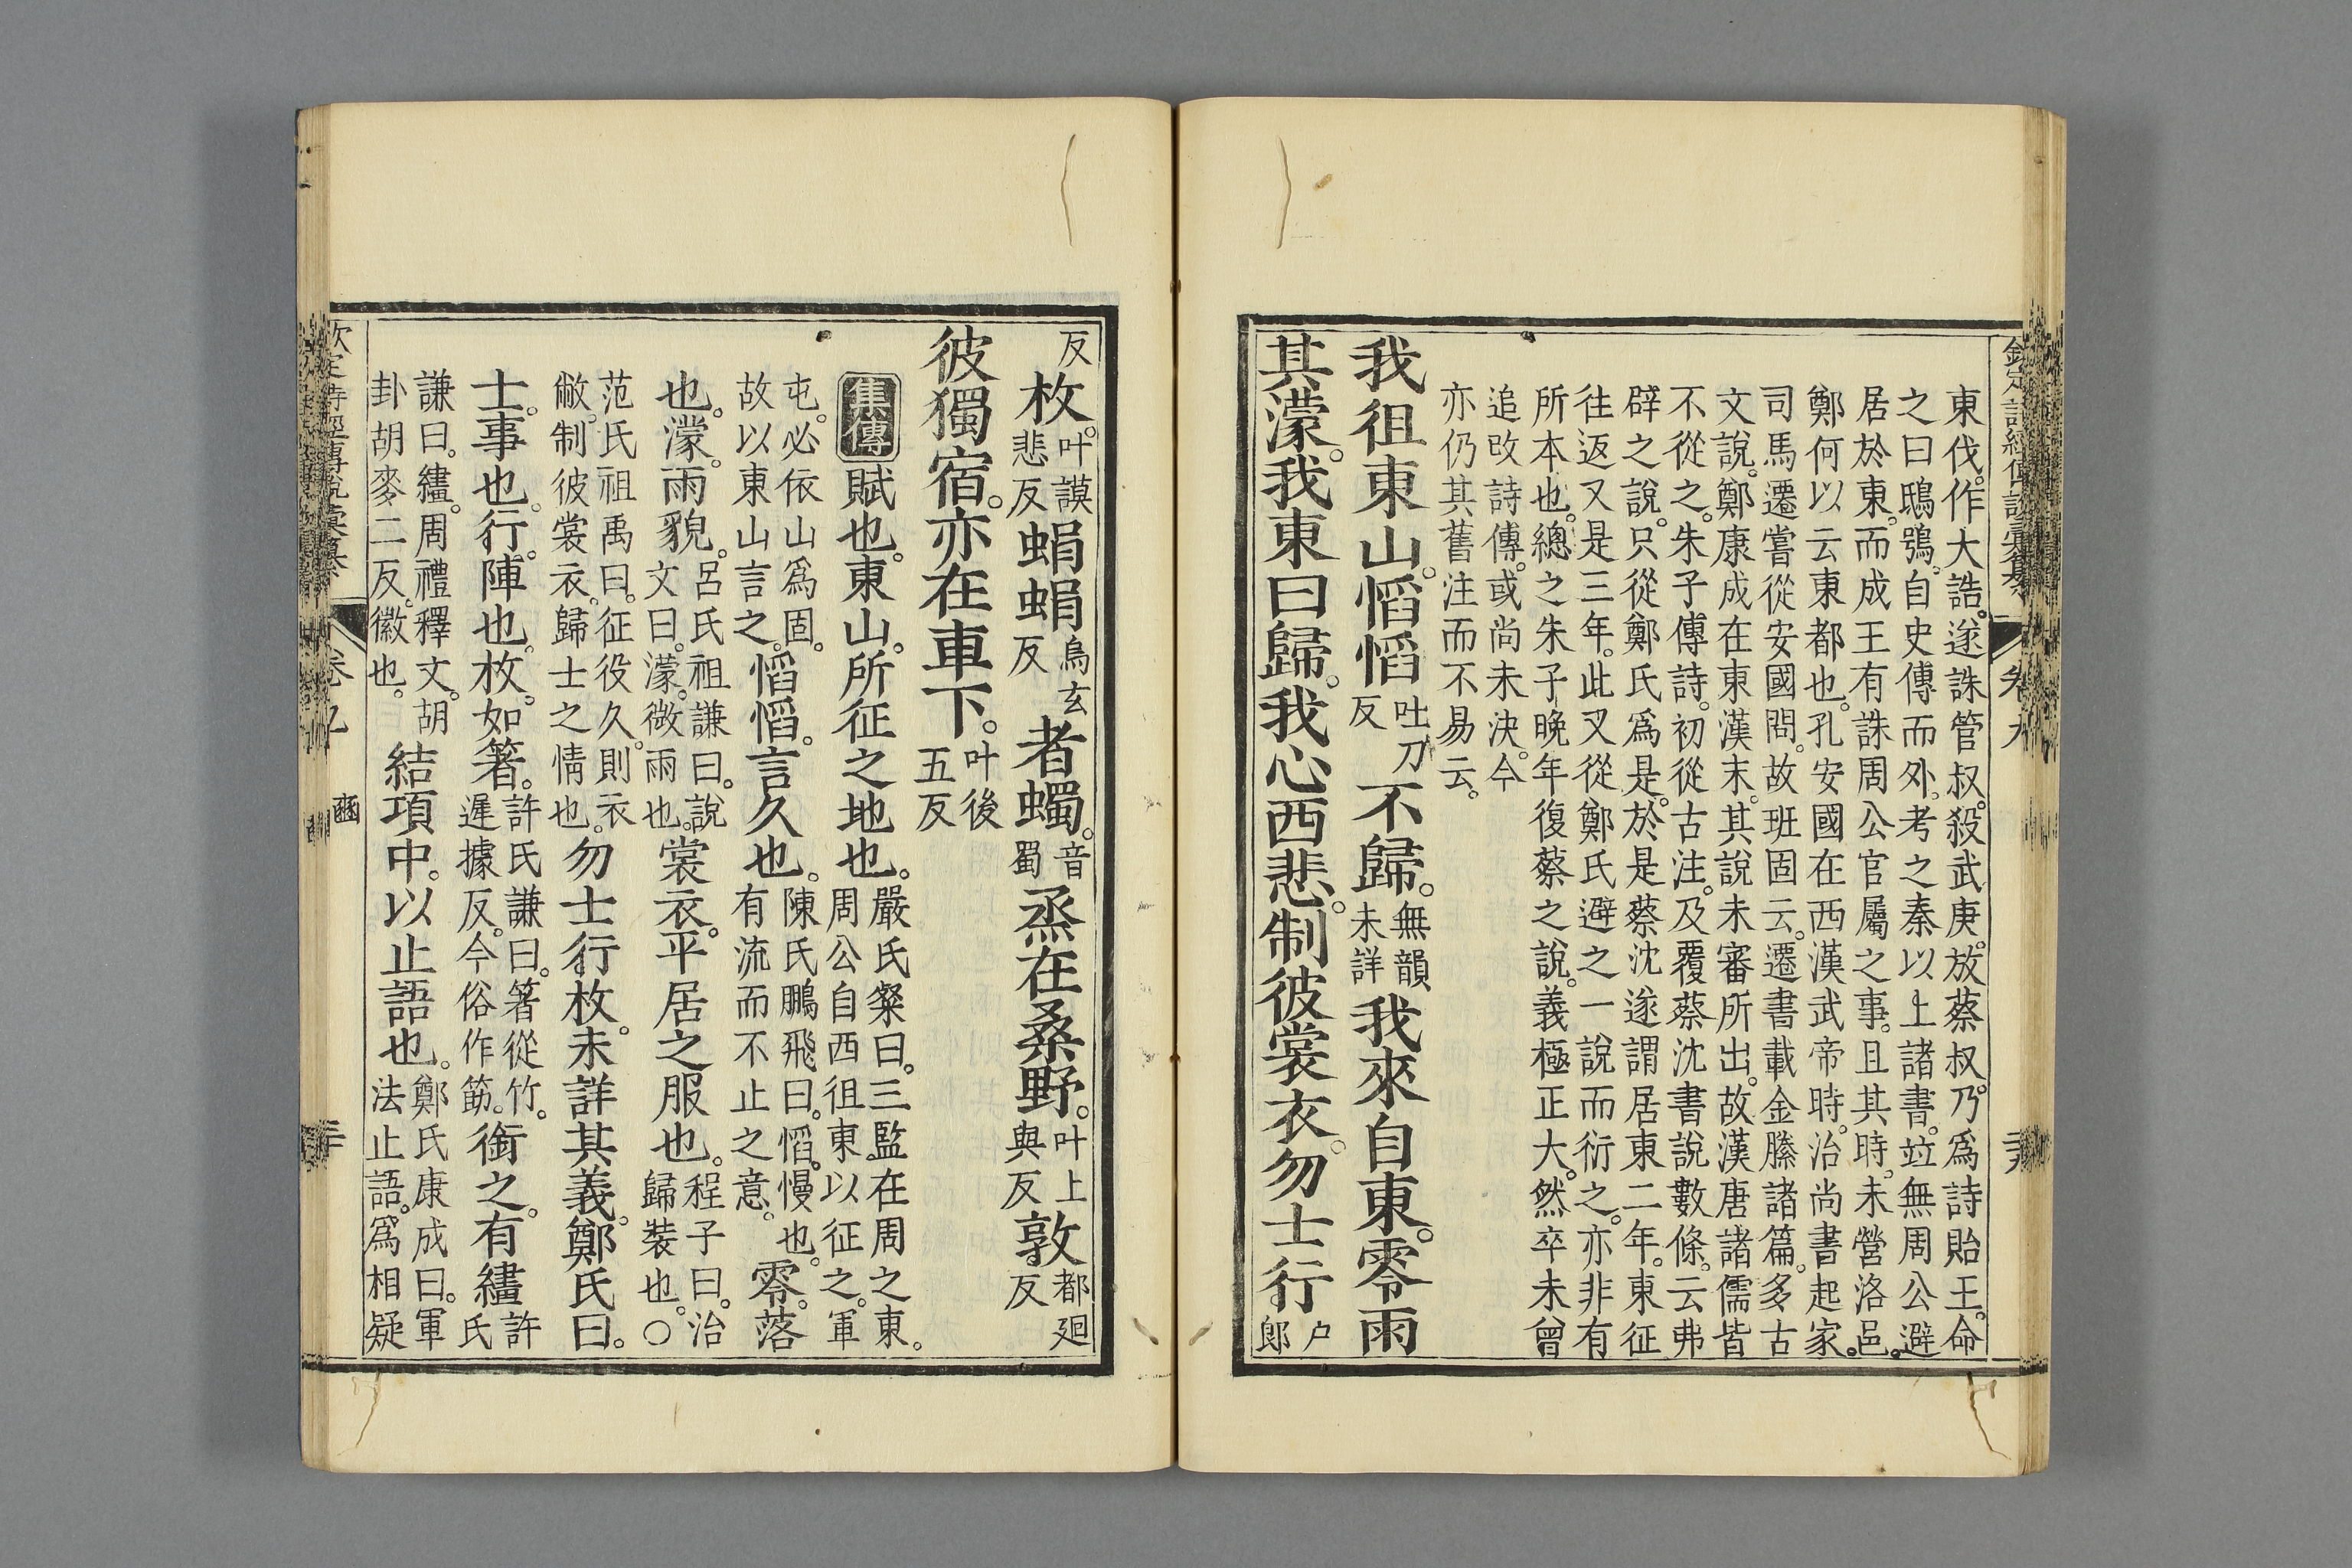 東伐。作大誥。遂誅管叔。殺武庚。放蔡叔。乃爲詩貽王。命
之曰鴟鴞。自史傳而外。考之秦以上諸書。竝無周公避
居於東。而成王有誅周公官屬之事。且其時。未營洛邑。
鄭何以云東都也。孔安國在西漢武帝時。治尚書起家。
司馬遷嘗從安國問。故班固云。遷書載金縢諸篇。多古
文說。鄭康成在東漢末。其說未審所出。故漢唐諸儒皆
不從之。朱子傳詩。初從古注。及覆蔡沈書說數條。云弗
辟之說。只從鄭氏爲是。於是蔡沈遂謂居東二年。東征
往返又是三年。此又從鄭氏避之一說而衍之。亦非有
所本也。總之朱子晚年復蔡之說。義極正大。然卒未曾
追改詩傳。或尚未決。今
亦仍其舊注而不易云。
我徂東山。慆慆吐刀反不歸。無韻未詳我來自東。零雨
其濛。我東曰歸。我心西悲。制彼裳衣。勿士行戶郞
反枚。叶謨悲反蜎蜎烏玄反者蠋。音蜀烝在桑野。叶上與反敦都迴反
彼獨宿。亦在車下。叶後五反
集傳賦也。東山。所征之地也。嚴氏粲曰。三監在周之東。周公自西徂東以征之。軍
屯。必依山爲固。故以東山言之。慆慆。言久也。陳氏鵬飛曰。慆。慢也。有流而不止之意。零。落
也。濛。雨貌。呂氏祖謙曰。說文曰。濛。微雨也。裳衣。平居之服也。程子曰。治歸裝也。○
范氏祖禹曰。征役久。則衣敝。制彼裳衣。歸士之情也。勿士行枚。未詳其義。鄭氏曰。
士。事也。行。陣也。枚。如箸。許氏謙曰。箸從竹。遲據反。今俗作筯。銜之。有繣許氏
謙曰。繣。周禮釋文。胡卦胡麥二反。徽也。結項中。以止語也。鄭氏康成曰。軍法止語。爲相疑
卷九
豳
三十